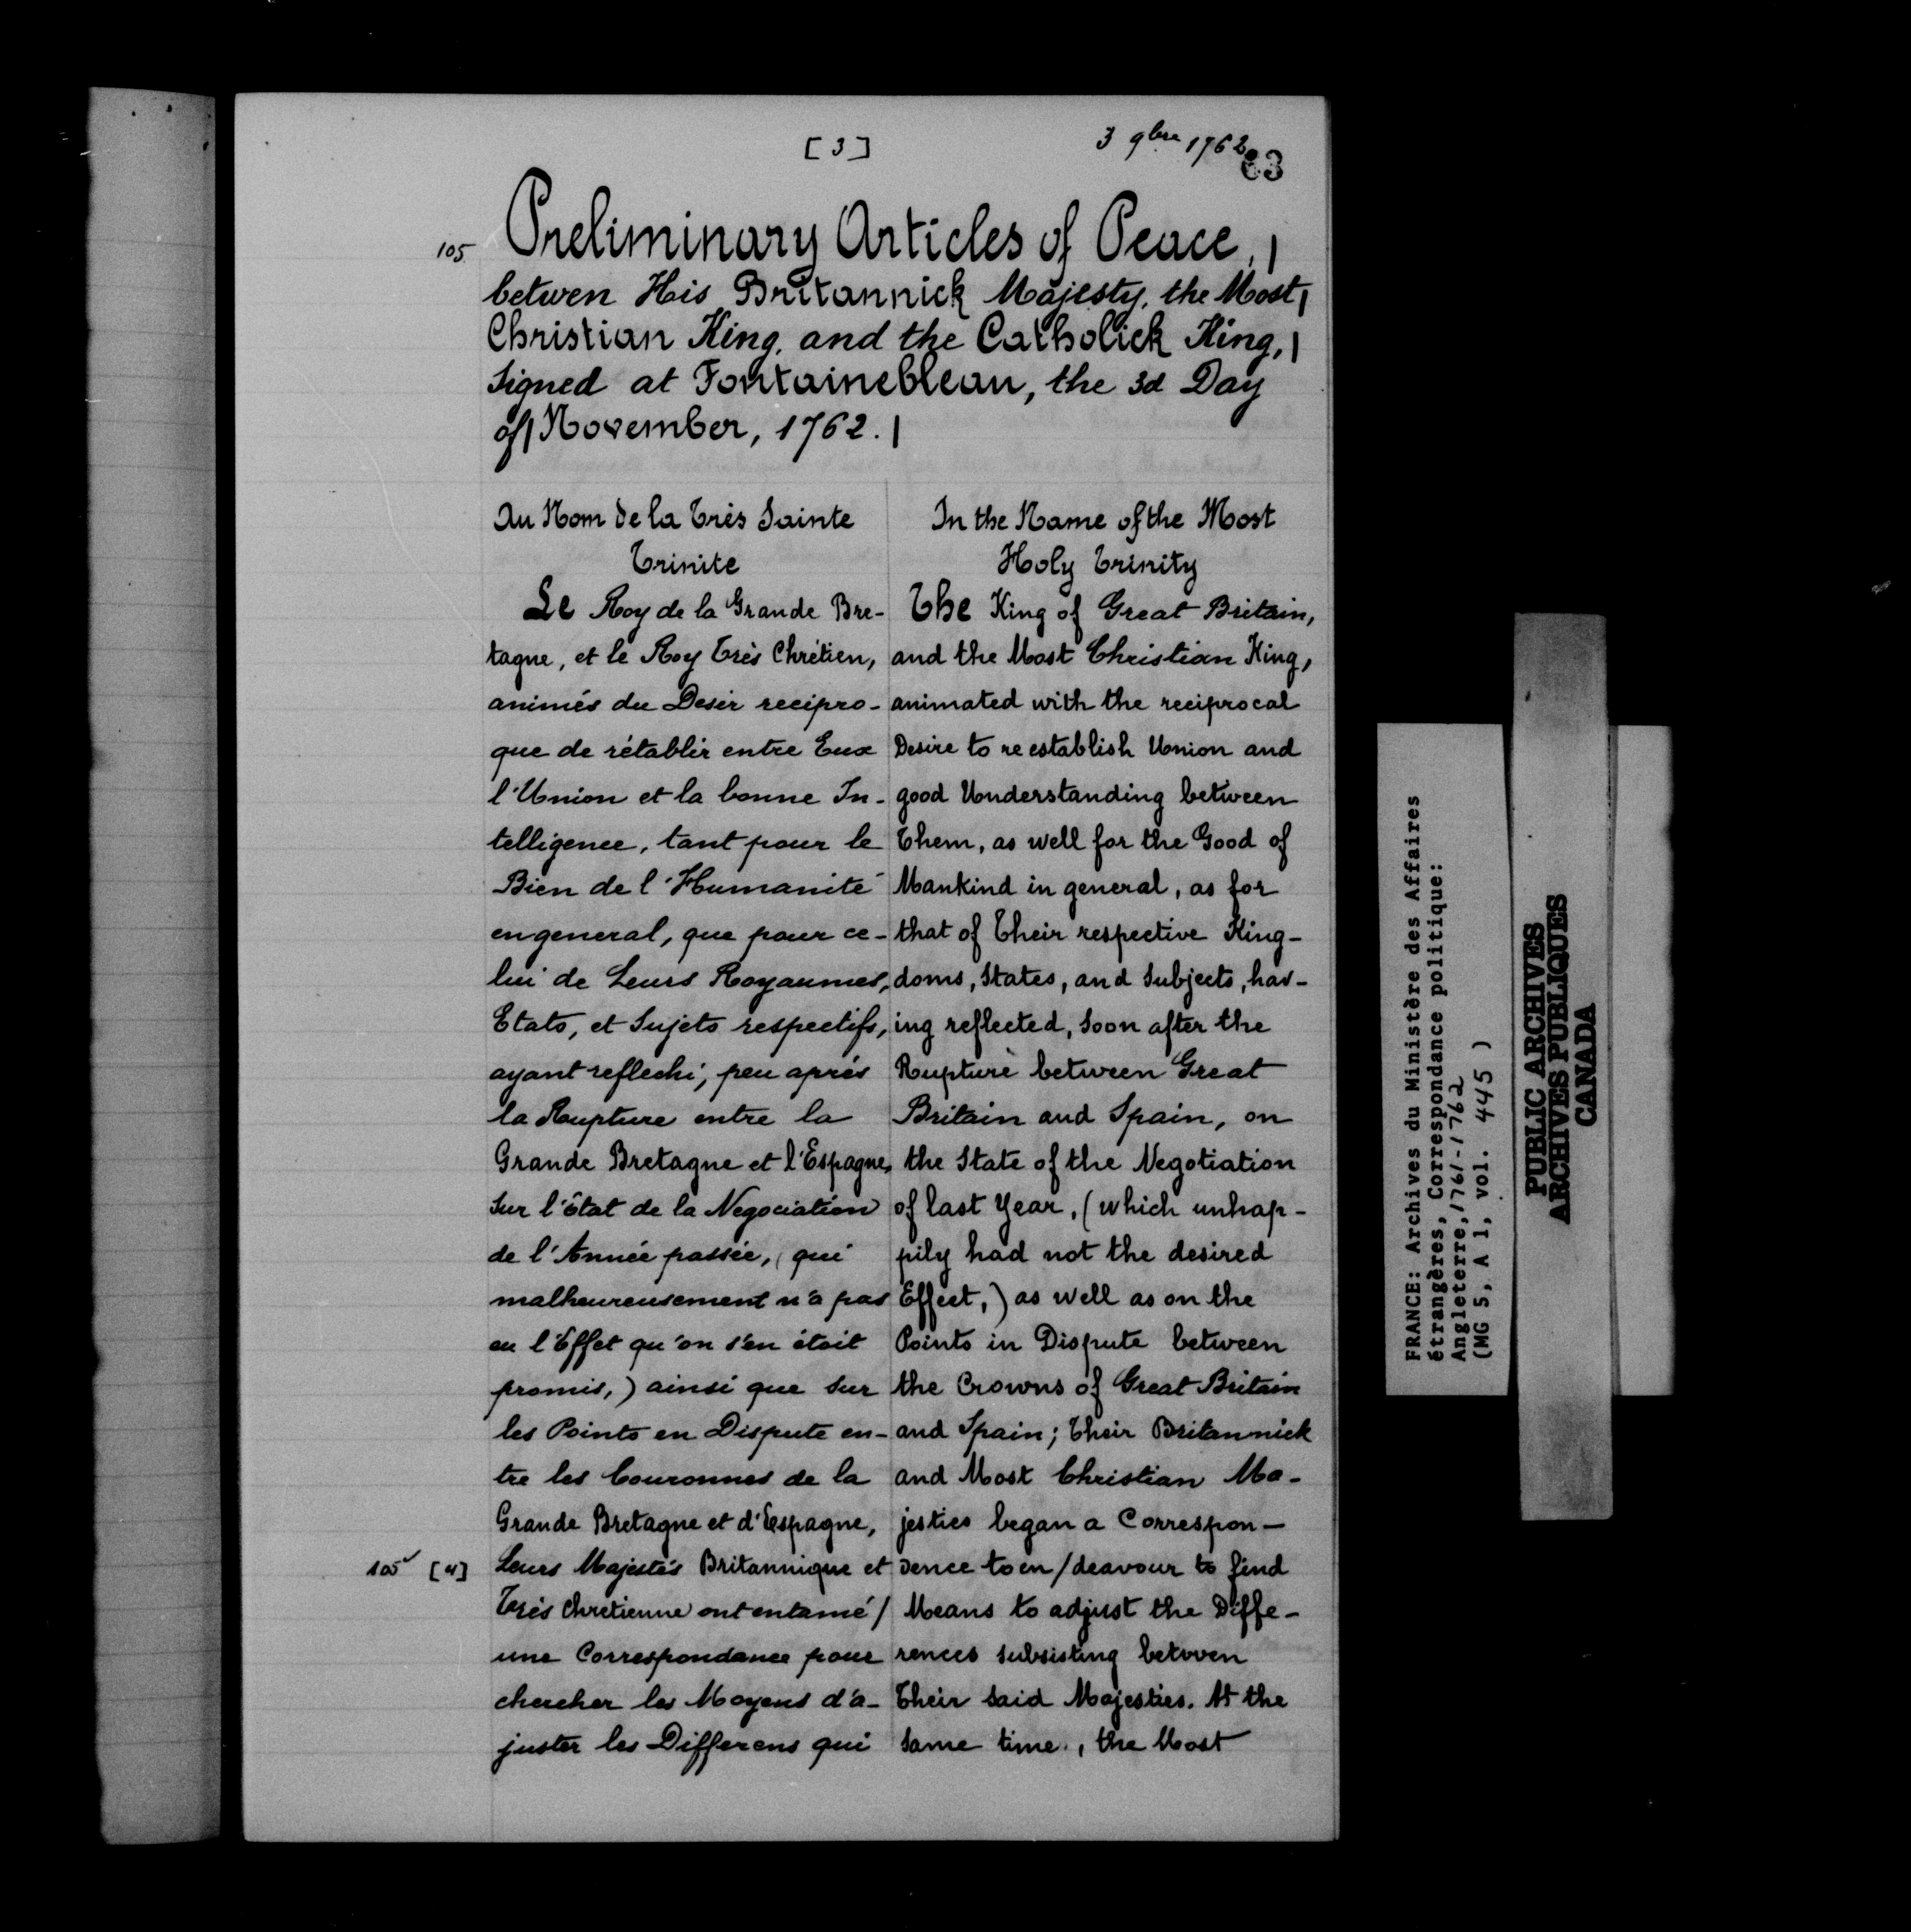 [3]
3 9bre 1762
63
105
Preliminary Articles of Peace, |
betwen His Britannick Majesty, the Most |
Christian King, and the Catholick King, |
Signed at Fontainebleau, the 3d Day
of | November, 1762. |
Au Nom de la Très Sainte
Trinite
Le Roy de la Grande Bre-
tagne, et le Roy Très Chrétien,
animés du Desir recipro-
que de rétablir entre Eux
l'Union et la bonne In-
telligence, tant pour le
Bien de l'Humanité
en general, que pour ce-
lui de Leurs Royaumes,
Etats, et Sujets respectifs,
ayant reflechi, peu après
la Rupture entre la
Grande Bretagne et l'Espagne,
Sur l'état de la Negociation
de l'Année passée, (qui
malheureusement n'a pas
eu l'Effet qu'on s'en étoit
promis,) ainsi que Sur
les Points en Dispute en-
tre les Couronnes de la
Grande Bretagne et d'Espagne,
105v [4]
Leurs Majestés Britannique et
Très Chretienne ont entamé /
une Correspondance pour
chercher les Moyens d'a-
juster les Differens qui
In the Name of the Most
Holy Trinity
The King of Great Britain,
and the Most Christian King,
animated with the reciprocal
Desire to re establish Union and
good Understanding between
Them, as well for the Good of
Mankind in general, as for
that of Their respective King-
doms, States, and Subjects, hav-
ing reflected, Soon after the
Rupture between Great
Britain and Spain, on
the State of the Negotiation
of last Year, (which unhap-
pily had not the desired
Effect,) as well as on the
Points in Dispute between
the Crowns of Great Britain
and Spain; Their Britannick
and Most Christian Ma-
jesties began a Correspon-
dence to en/deavour to find
Means to adjust the Diffe-
rences Subsisting betwen
Their Said Majesties. At the
Same time, the Most
FRANCE: Archives du Ministère des Affaires
étrangères, Correspondance politique:
Angleterre, 1761-1762
(MG 5, A 1, vol. 445 )
PUBLIC ARCHIVES
ARCHIVES PUBLIQUES
CANADA